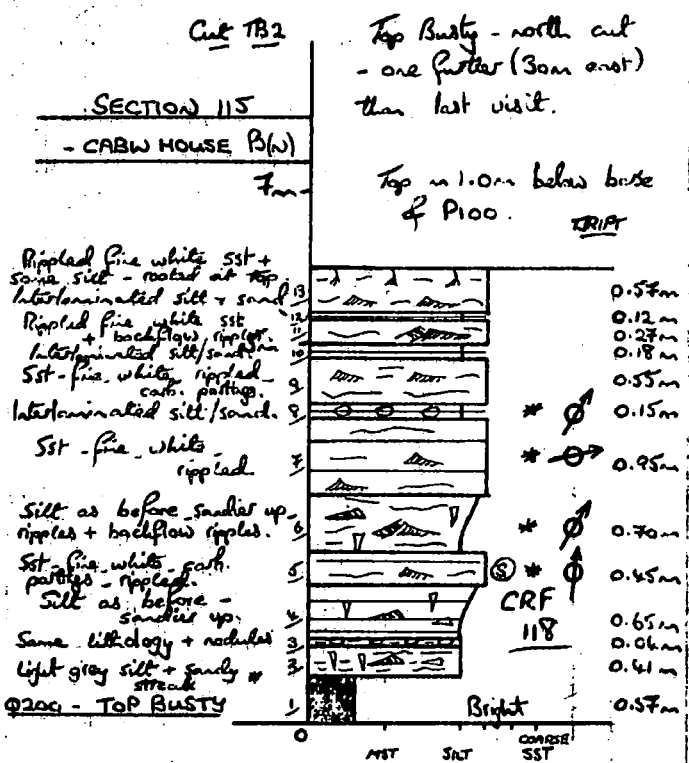 Cut TB2
Top Busty - north cut
- one further (30m east)
than last visit.
SECTION 115
- CABIN HOUSE B(N)
7m
Top ~ 1.0m below base
of P100.
DRIFT
Rippled fine white sst +
some silt - rooted at top.
13
0.57m
Interlaminated silt + sand
12
0.12m
Rippled fine white sst
+ backflow ripples.
11
0.27m
Interlaminated silt/sand.
10
0.18m
Sst - fine, white, rippled -
carb. partings.
9
0.55m
Interlaminated silt/sand.
8
*
0.15m
Sst - fine, white -
rippled.
7
*
0.95m
Silt as before - sandier up -
ripples + backflow ripples.
6
*
0.70m
Sst - fine, white - carb.
partings - rippled.
5
S
*
0.45m
CRF
118
Silt as before -
sandier up.
4
0.65m
Same lithology + nodules
3
0.06m
Light grey silt + sandy
streak *
2
0.41m
Q200 - TOP BUSTY
1
Bright
0.57m
0
MST
SILT
COARSE
SST